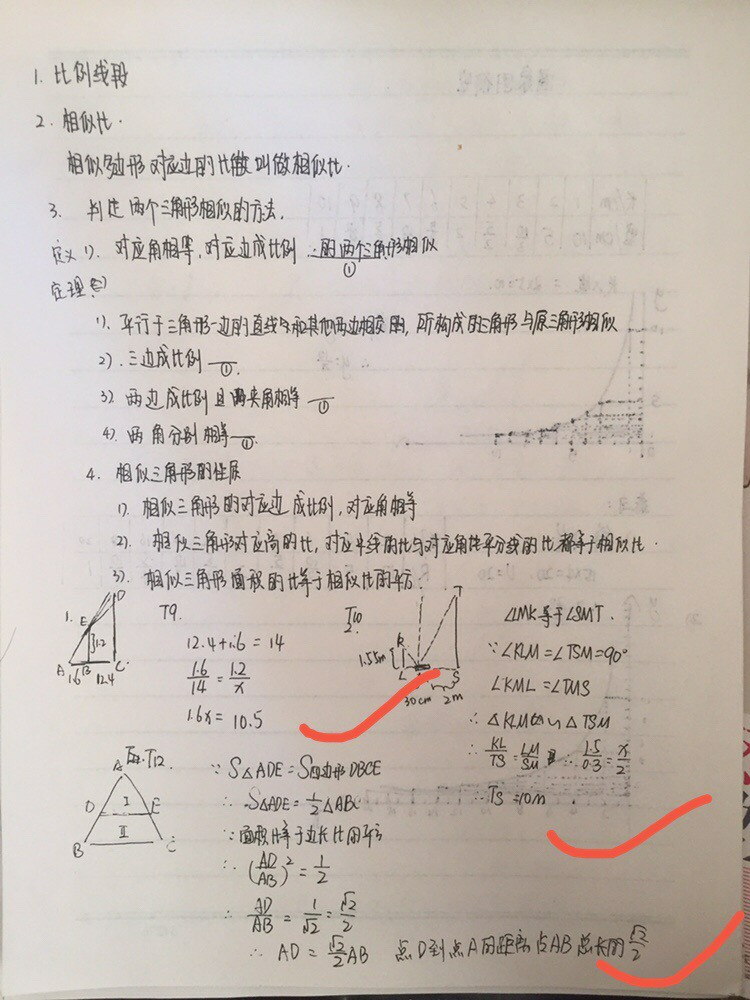 1. 比例线段
2. 相似比.
相似多边形对应边的比叫做相似比.
3. 判定两个三角形相似的方法.
定义 1). 对应角相等, 对应边成比例 的两个三角形相似
①
定理
1). 平行于三角形一边的直线和其他两边相交的, 所构成的三角形与原三角形相似
2). 三边成比例 ①.
3) 两边成比例且夹角相等 ①
4). 两角分别相等 ①.
4. 相似三角形的性质
1). 相似三角形的对应边成比例, 对应角相等
2). 相似三角形对应高的比, 对应中线的比与对应角平分线的比都等于相似比.
3). 相似三角形面积的比等于相似比的平方.
1. T9.
D E 1.2 A B C 1.6 12.4
12.4+1.6=14
1.6/14=1.2/x
1.6x=10.5
T10
2.
K T 1.55m L S 30cm 2m
∠LMK等于∠SMT.
∵∠KLM=∠TSM=90°
∠KML=∠TMS
∴△KLM∽△TSM
∴ KL/TS=LM/SM ∴ 1.5/0.3=x/2
∴TS=10m.
T12
A D I E II B C
∵S△ADE=S四边形DBCE
∴S△ADE=1/2△ABC
∵面积比等于边长比的平方
∴(AD/AB)²=1/2
∴AD/AB=1/√2=√2/2
∴AD=√2/2AB 点D到点A的距离占AB总长的√2/2